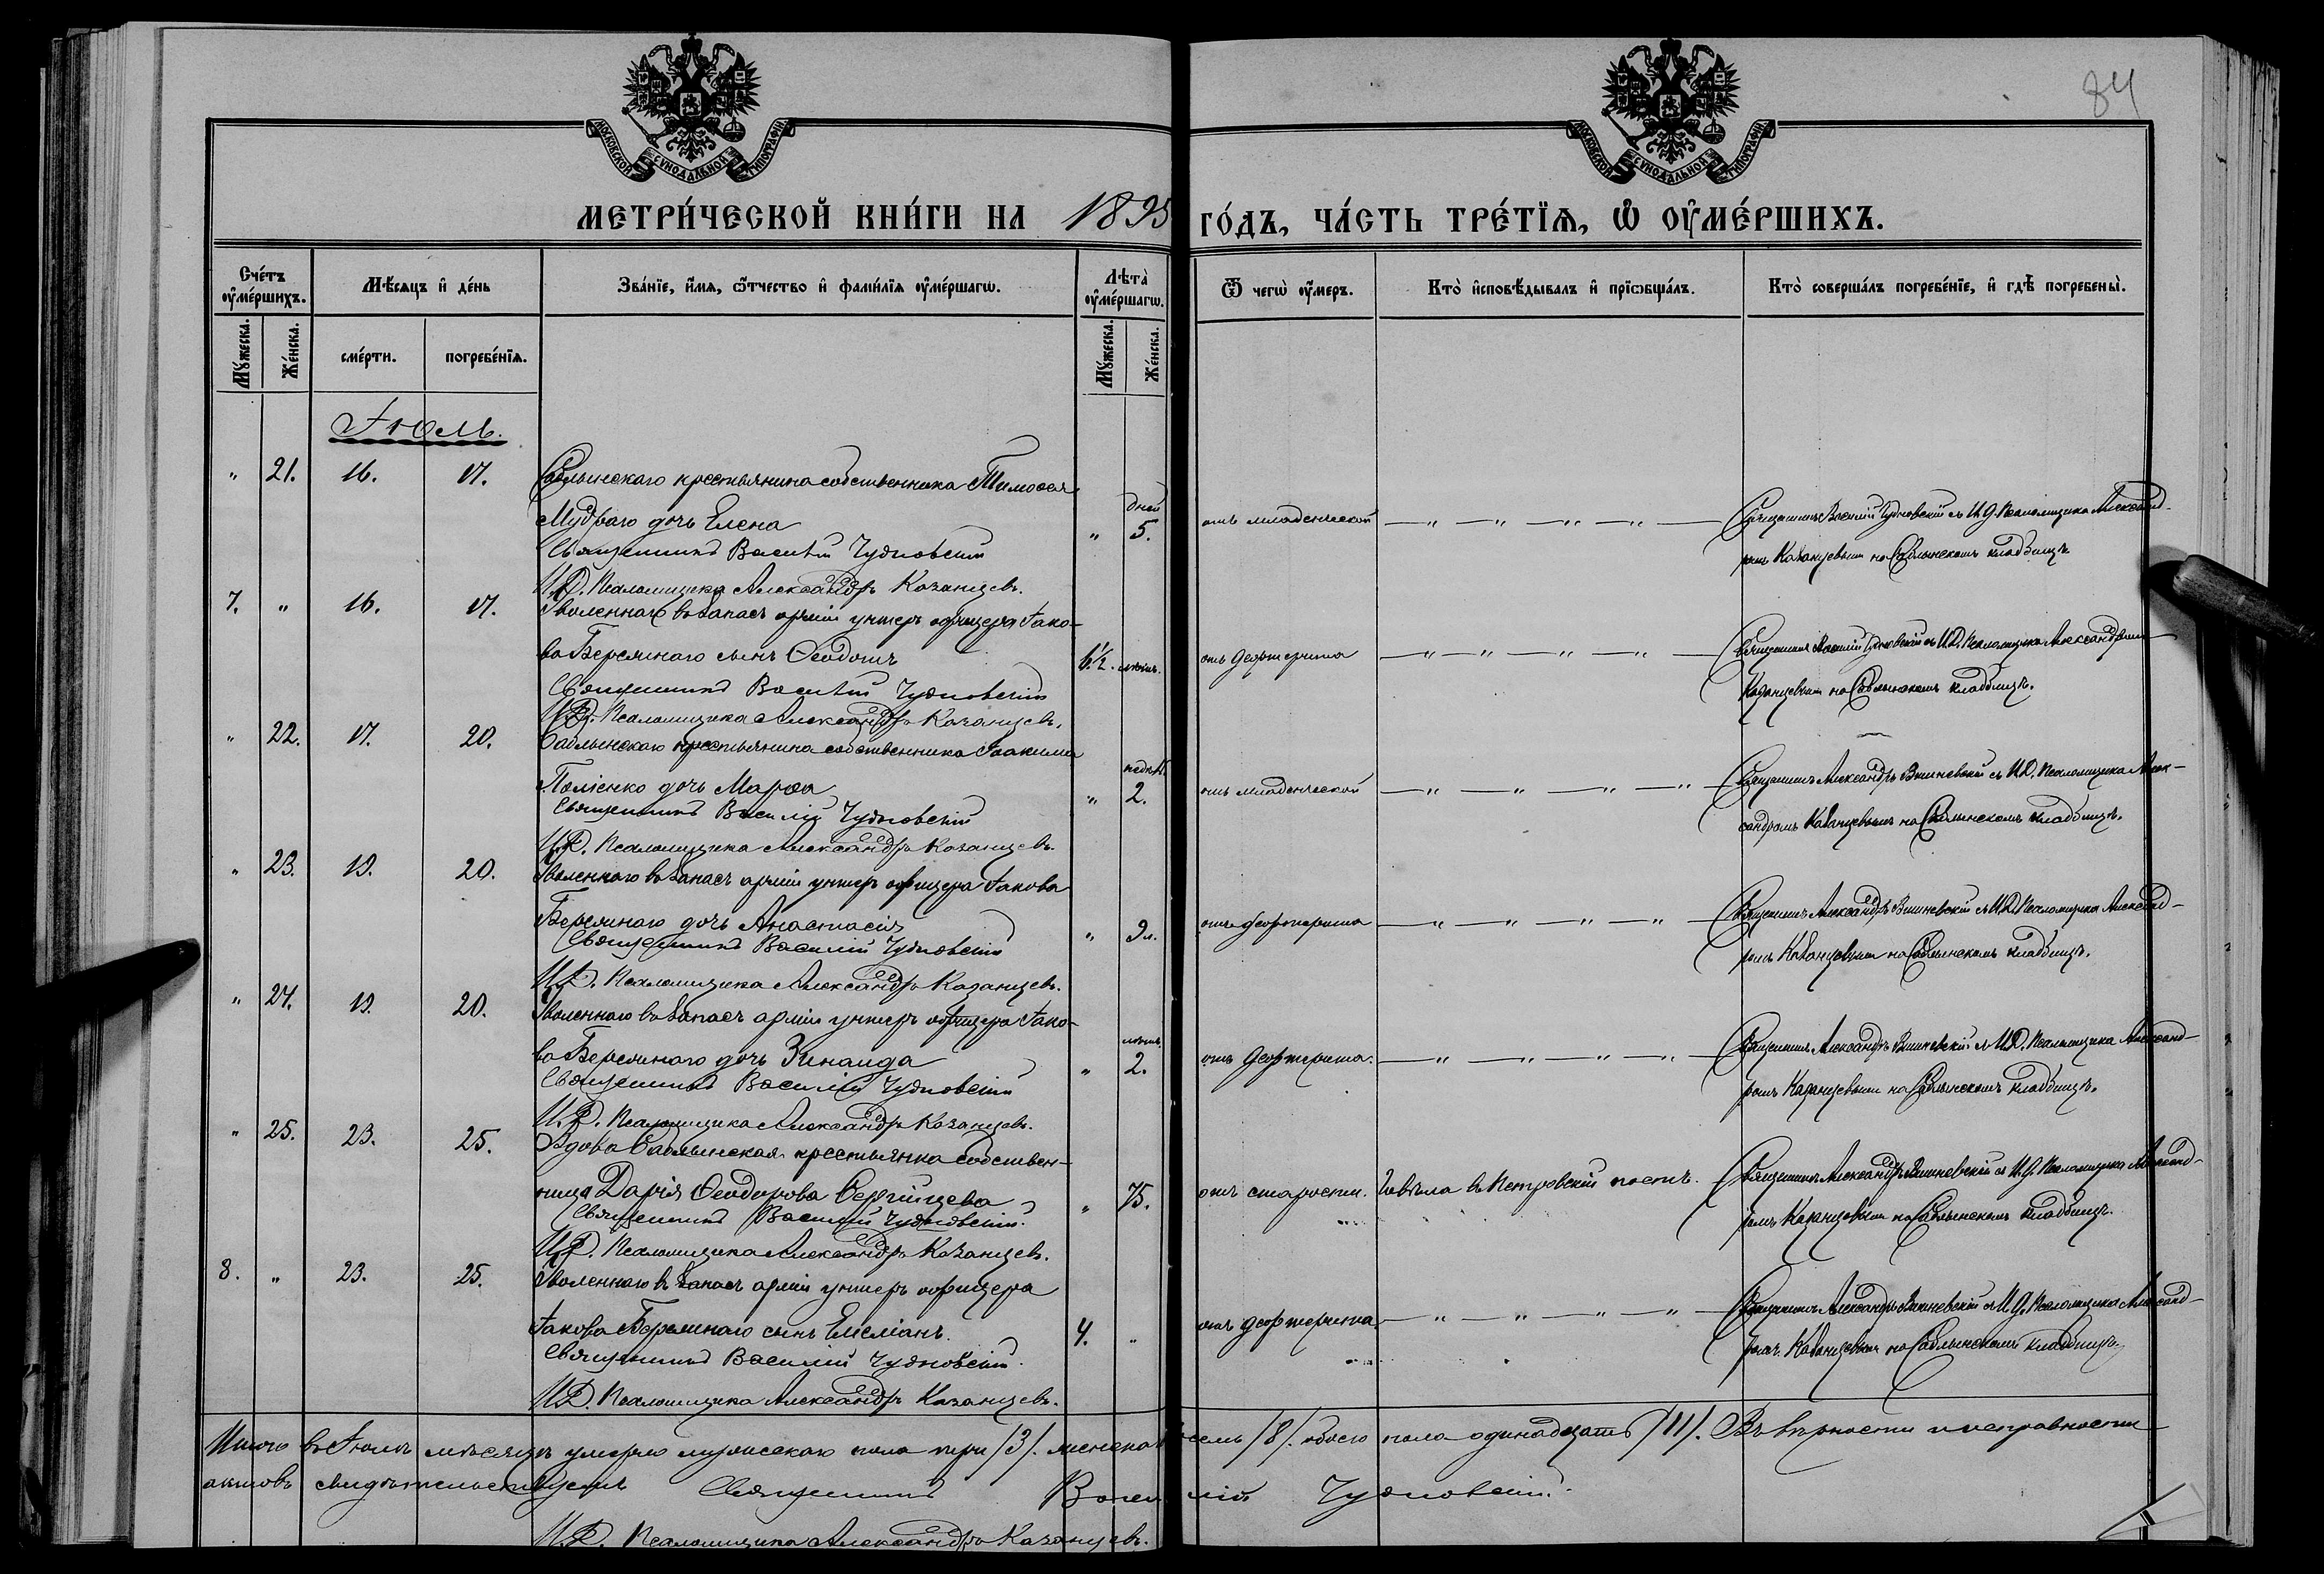 84
МОСКОВСКОЙ СѴНОДАЛЬНОЙ ТИПОГРАФІИ
МОСКОВСКОЙ СѴНОДАЛЬНОЙ ТИПОГРАФІИ
МЕТРИ́ЧЕСКОЙ КНИ́ГИ НА 1895 ГО́ДЪ, ЧА́СТЬ ТРЕ́ТІѦ, Ѡ҆ ОУ҆МЕ́РШИХЪ.
Сче́тъ оу҆ме́ршихъ.
Мѣ́сяцъ и҆ де́нь
Зва́нїе, и҆́мѧ, ѻ҆́тчество и҆ фами́лїѧ оу҆ме́ршагѡ.
Лѣ́та оу҆ме́ршагѡ.
Ѿ чегѡ̀ оу҆́меръ.
Кто̀ и҆сповѣ́дывалъ и҆ прїѡбща́лъ.
Кто̀ соверша́лъ погребе́нїе, и҆ гдѣ̀ погребены̀.
Мꙋ́жеска.
Же́нска.
сме́рти.
погребе́нїѧ.
Мꙋ́жеска.
Же́нска.
Іюль.
" 21. 16. 17. Саблынскаго крестьянина собственника Тимоѳея
Мудраго дочь Елена " дней 5. отъ младенческой — " — " — " — " — Священникъ Василій Чудновскій съ И.Д. Псаломщика Александ-
Священникъ Василій Чудновскій
ромъ Казанцевымъ на Саблынскомъ кладбищѣ.
И.Д. Псаломщика Александръ Казанцевъ.
7. " 16. 17. Уволеннаго въ запасъ арміи унтеръ офицера Іако-
ва Березинаго сынъ Ѳеодотъ 6½. лѣтъ. отъ дифтерита — " — " — " — " — Священникъ Василій Чудновскій съ И.Д. Псаломщика Александромъ
Священникъ Василій Чудновскій
Казанцевымъ на Саблынскомъ кладбищѣ.
И.Д. Псаломщика Александръ Казанцевъ.
" 22. 17. 20. Саблынскаго крестьянина собственника Іоакима
дочь Марѳа " недѣл. 2. отъ младенческой — " — " — " — " — Священникъ Александръ Вишневскій съ И.Д. Псаломщика Алек-
Священникъ Василій Чудновскій
сандромъ Казанцевымъ на Саблынскомъ кладбищѣ.
И.Д. Псаломщика Александръ Казанцевъ.
" 23. 19. 20. Уволеннаго въ запасъ арміи унтеръ офицера Іакова
Березинаго дочь Анастасія " 9 л. отъ дифтерита — " — " — " — " — Священникъ Александръ Вишневскій съ И.Д. Псаломщика Александ-
Священникъ Василій Чудновскій
ромъ Казанцевымъ на Саблынскомъ кладбищѣ.
И.Д. Псаломщика Александръ Казанцевъ.
" 24. 19. 20. Уволеннаго въ запасъ арміи унтеръ офицера Іако-
ва Березинаго дочь Зинаида " лѣтъ. 2. отъ дифтерита. — " — " — " — " — Священникъ Александръ Вишневскій съ И.Д. Псаломщика Александ-
Священникъ Василій Чудновскій
ромъ Казанцевымъ на Саблынскомъ кладбищѣ.
И.Д. Псаломщика Александръ Казанцевъ.
" 25. 23. 25. Вдова Саблынская крестьянка собствен-
ница Дарія Ѳеодорова " 75. отъ старости. Говѣла въ Петровскій постъ. Священникъ Александръ Вишневскій съ И.Д. Псаломщика Александ-
Священникъ Василій Чудновскій.
ромъ Казанцевымъ на Саблынскомъ кладбищѣ.
И.Д. Псаломщика Александръ Казанцевъ.
8. " 23. 25. Уволеннаго въ запасъ арміи унтеръ офицера
Іакова Березинаго сынъ Емеліанъ. 4. " отъ дифтерита. — " — " — " — " — Священникъ Александръ Вишневскій съ И.Д. Псаломщика Александ-
Священникъ Василій Чудновскій.
ромъ Казанцевымъ на Саблынскомъ кладбищѣ.
И.Д. Псаломщика Александръ Казанцевъ.
Итого въ Іюлѣ мѣсяцѣ умерло мужескаго пола три /3/. женска восемь /8/. обоего пола одинадцать /11/. Въ вѣрности и исправности
актовъ свидѣтельствуемъ Священникъ Василій Чудновскій.
И.Д. Псаломщика Александръ Казанцевъ.